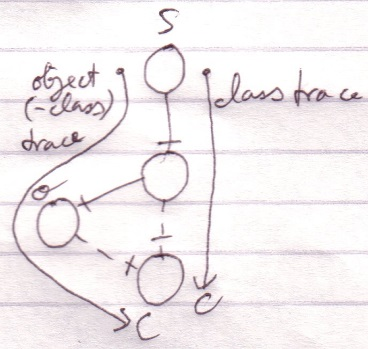 S
object
(-class)
trace
class trace
C
C